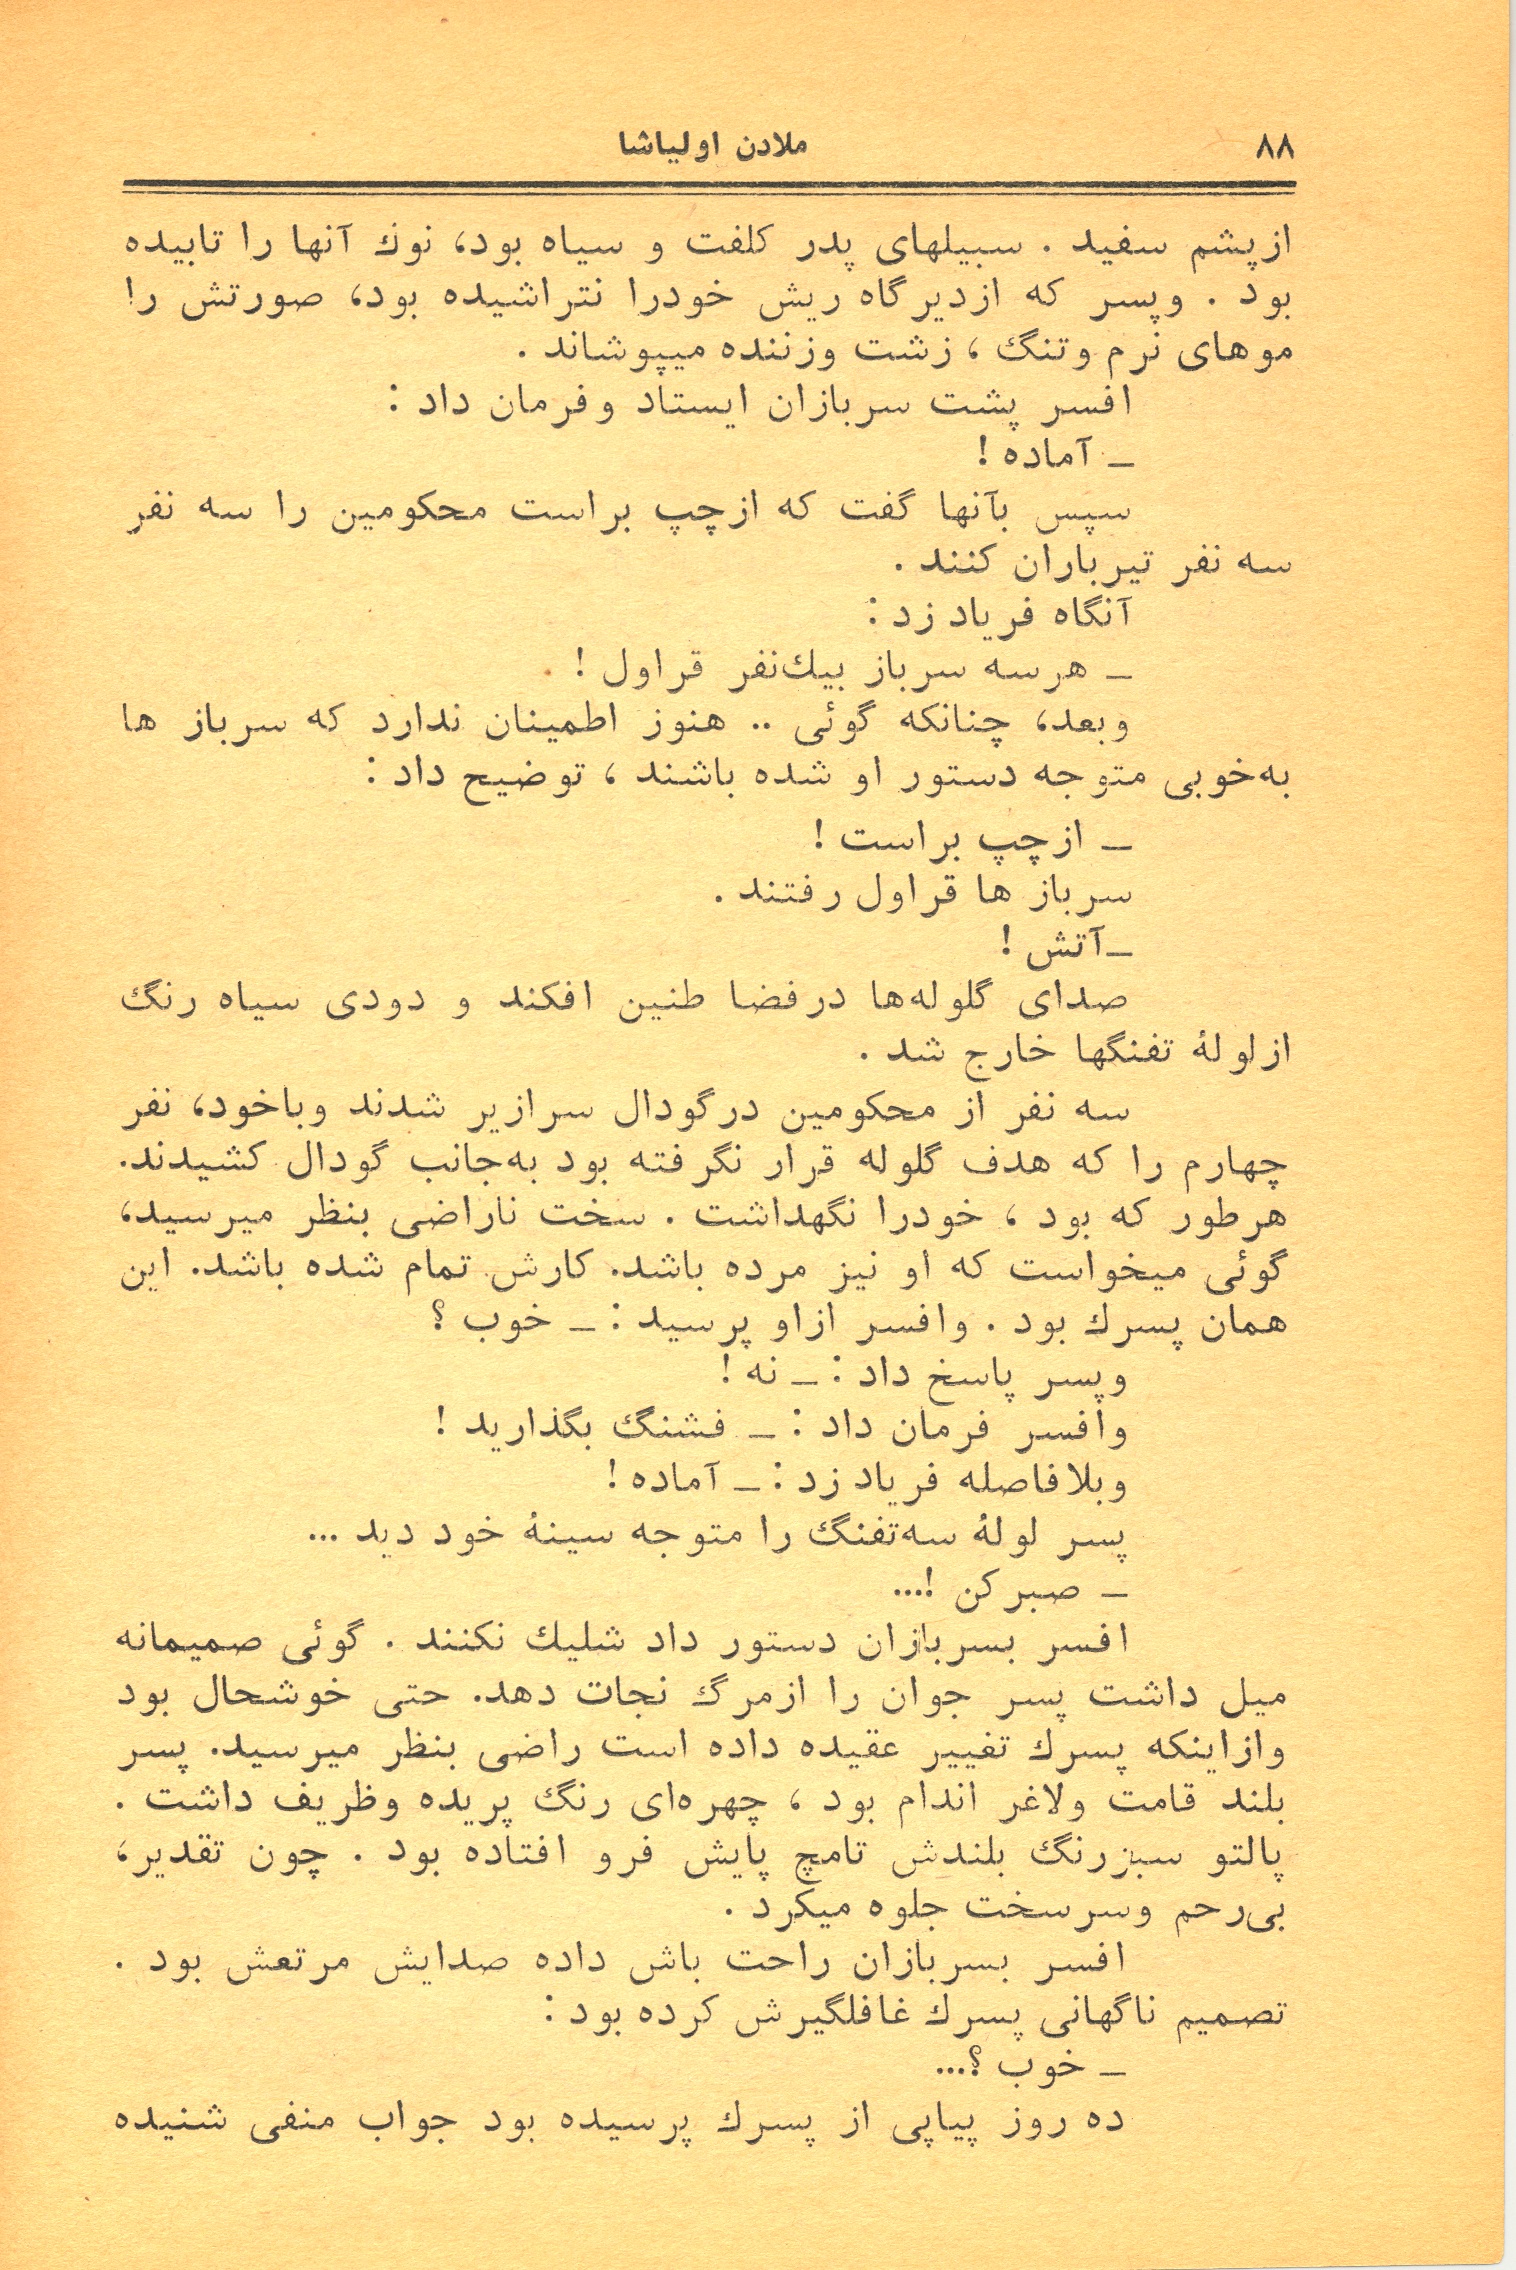 ۸۸
ملادن اولیاشا
ازپشم سفید . سبیلهای پدر کلفت و سیاه بود، نوك آنها را تابیده
بود . وپسر که ازدیرگاه ریش خودرا نتراشیده بود، صورتش را
موهای نرم وتنگ ، زشت وزننده میپوشاند .
افسر پشت سربازان ایستاد وفرمان داد :
ـ آماده !
سپس بآنها گفت که ازچپ براست محکومین را سه نفر
سه نفر تیرباران کنند .
آنگاه فریاد زد :
ـ هرسه سرباز بیك‌نفر قراول !
وبعد، چنانکه گوئی .. هنوز اطمینان ندارد که سرباز ها
به‌خوبی متوجه دستور او شده باشند ، توضیح داد :
ـ ازچپ براست !
سرباز ها قراول رفتند .
ـآتش !
صدای گلوله‌ها درفضا طنین افکند و دودی سیاه رنگ
ازلولهٔ تفنگها خارج شد .
سه نفر از محکومین درگودال سرازیر شدند وباخود، نفر
چهارم را که هدف گلوله قرار نگرفته بود به‌جانب گودال کشیدند.
هرطور که بود ، خودرا نگهداشت . سخت ناراضی بنظر میرسید،
گوئی میخواست که او نیز مرده باشد. کارش تمام شده باشد. این
همان پسرك بود . وافسر ازاو پرسید : ـ خوب ؟
وپسر پاسخ داد : ـ نه !
وافسر فرمان داد : ـ فشنگ بگذارید !
وبلافاصله فریاد زد : ـ آماده !
پسر لولهٔ سه‌تفنگ را متوجه سینهٔ خود دید ...
ـ صبرکن !...
افسر بسربازان دستور داد شلیك نکنند . گوئی صمیمانه
میل داشت پسر جوان را ازمرگ نجات دهد. حتی خوشحال بود
وازاینکه پسرك تغییر عقیده داده است راضی بنظر میرسید. پسر
بلند قامت ولاغر اندام بود ، چهره‌ای رنگ پریده وظریف داشت .
پالتو سبزرنگ بلندش تامچ پایش فرو افتاده بود . چون تقدیر،
بی‌رحم وسرسخت جلوه میکرد .
افسر بسربازان راحت باش داده صدایش مرتعش بود .
تصمیم ناگهانی پسرك غافلگیرش کرده بود :
ـ خوب ؟...
ده روز پیاپی از پسرك پرسیده بود جواب منفی شنیده